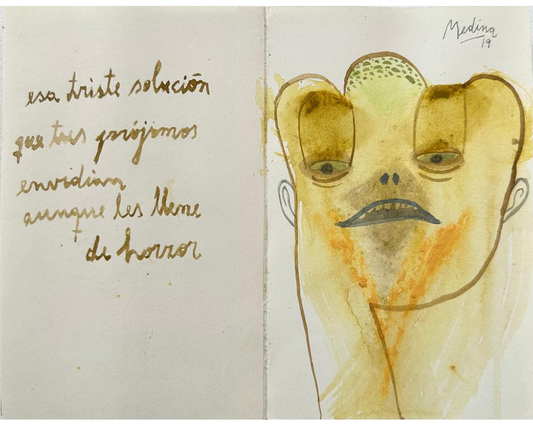 esa triste solución
que tus prójimos
envidian
aunque les llene
de horror
Medina
19